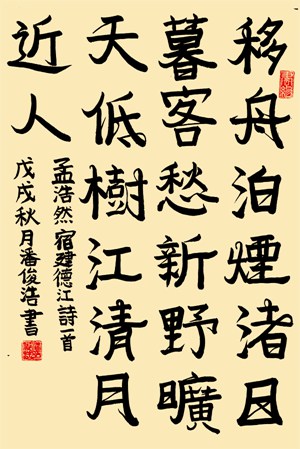 移舟泊煙渚日
暮客愁新野曠
天低樹江清月
近人
孟浩然宿建德江詩一首
戊戌秋月潘俊浩書